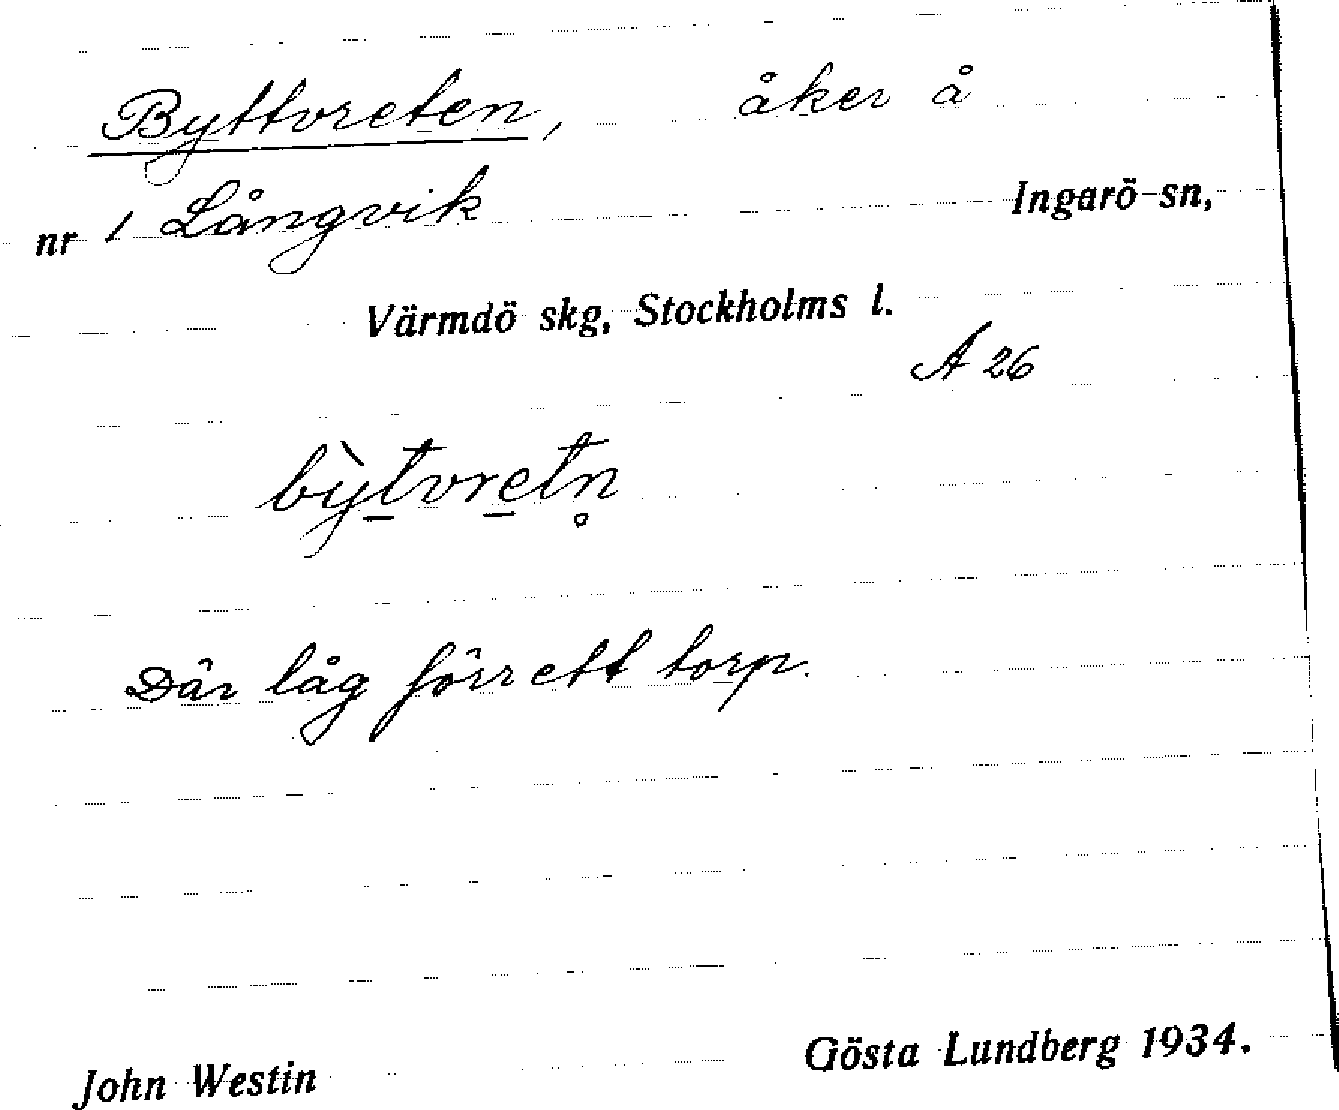 Byttvreten, åker å
nr 1 Långvik Ingarö sn,
Värmdö skg, Stockholms l.
A 26
bỳt̠vre̠tn̥
Där låg förr ett torp.
John Westin Gösta Lundberg 1934.